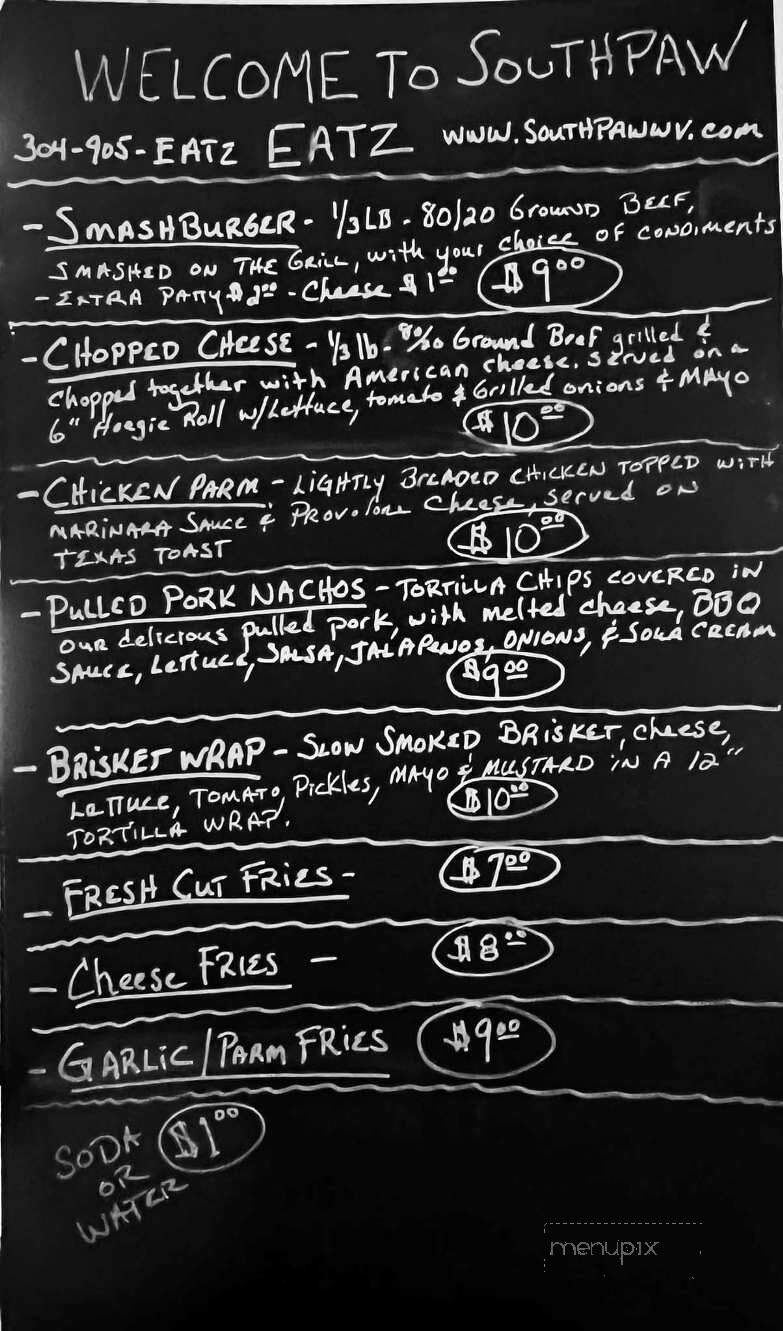 WELCOME TO SOUTHPAW
304-905-EATZ EATZ WWW.SOUTHPAWWV.com
- SMASHBURGER - 1/3 LB - 80/20 GROUND BEEF,
SMASHED ON THE GRILL, with your choice OF CONDIMENTS
- EXTRA PATTY $2.00 - Cheese $1.00 $9.00
- CHOPPED CHEESE - 1/3 lb - 80/20 Ground Beef grilled &
chopped together with American cheese. Served on a
6" Hoagie Roll w/Lettuce, tomato & Grilled onions & MAYO
$10.00
- CHICKEN PARM - LIGHTLY BREADED CHICKEN TOPPED WITH
MARINARA SAUCE & PROVOLONE Cheese, served ON
TEXAS TOAST $10.00
- PULLED PORK NACHOS - TORTILLA CHIPS COVERED IN
our delicious pulled pork, with melted cheese, BBQ
SAUCE, Lettuce, SALSA, JALAPENOS, ONIONS, & SOUR CREAM
$9.00
- BRISKET WRAP - SLOW SMOKED BRISKET, cheese,
LETTUCE, TOMATO, Pickles, MAYO & MUSTARD IN A 12"
TORTILLA WRAP. $10.00
- FRESH CUT FRIES - $7.00
- Cheese FRIES - $8.00
- GARLIC/PARM FRIES $9.00
SODA $1.00
OR
WATER
menupix